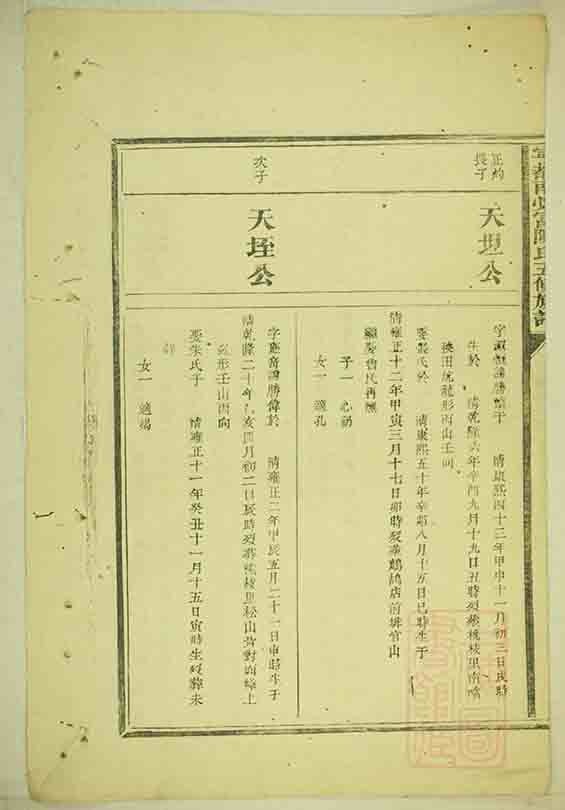 正灼
長子
天坦公
清康熙四十三年甲申十一月初三日戌時
生於 清乾隆六年辛酉九月十九日丑時歿葬桃枝里南嶺
形丙山壬向
清康熙五十年辛卯八月十五日巳時生于
清雍正十二年甲寅三月十七日卯時歿葬鷓鴣店前排官山
繼娶曾氏再醮
子一 心
女一 適孔
次子
天垤公
字應奇諱勝偉於 清雍正二年甲辰五月二十一日申時生于
清乾隆二十年乙亥四月初二日辰時歿葬桃枝里松山背對面嶺上
形壬山丙向
娶朱氏于 清雍正十一年癸丑十一月十五日寅時生歿葬未
詳
女一 適楊